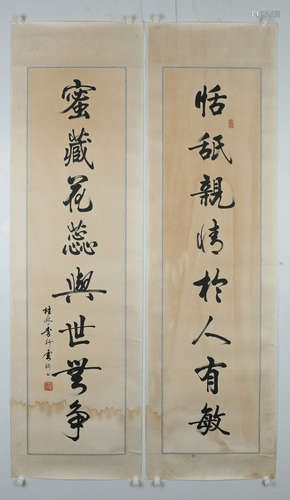 恬舐親情於人有敏
蜜藏花蕊與世無争